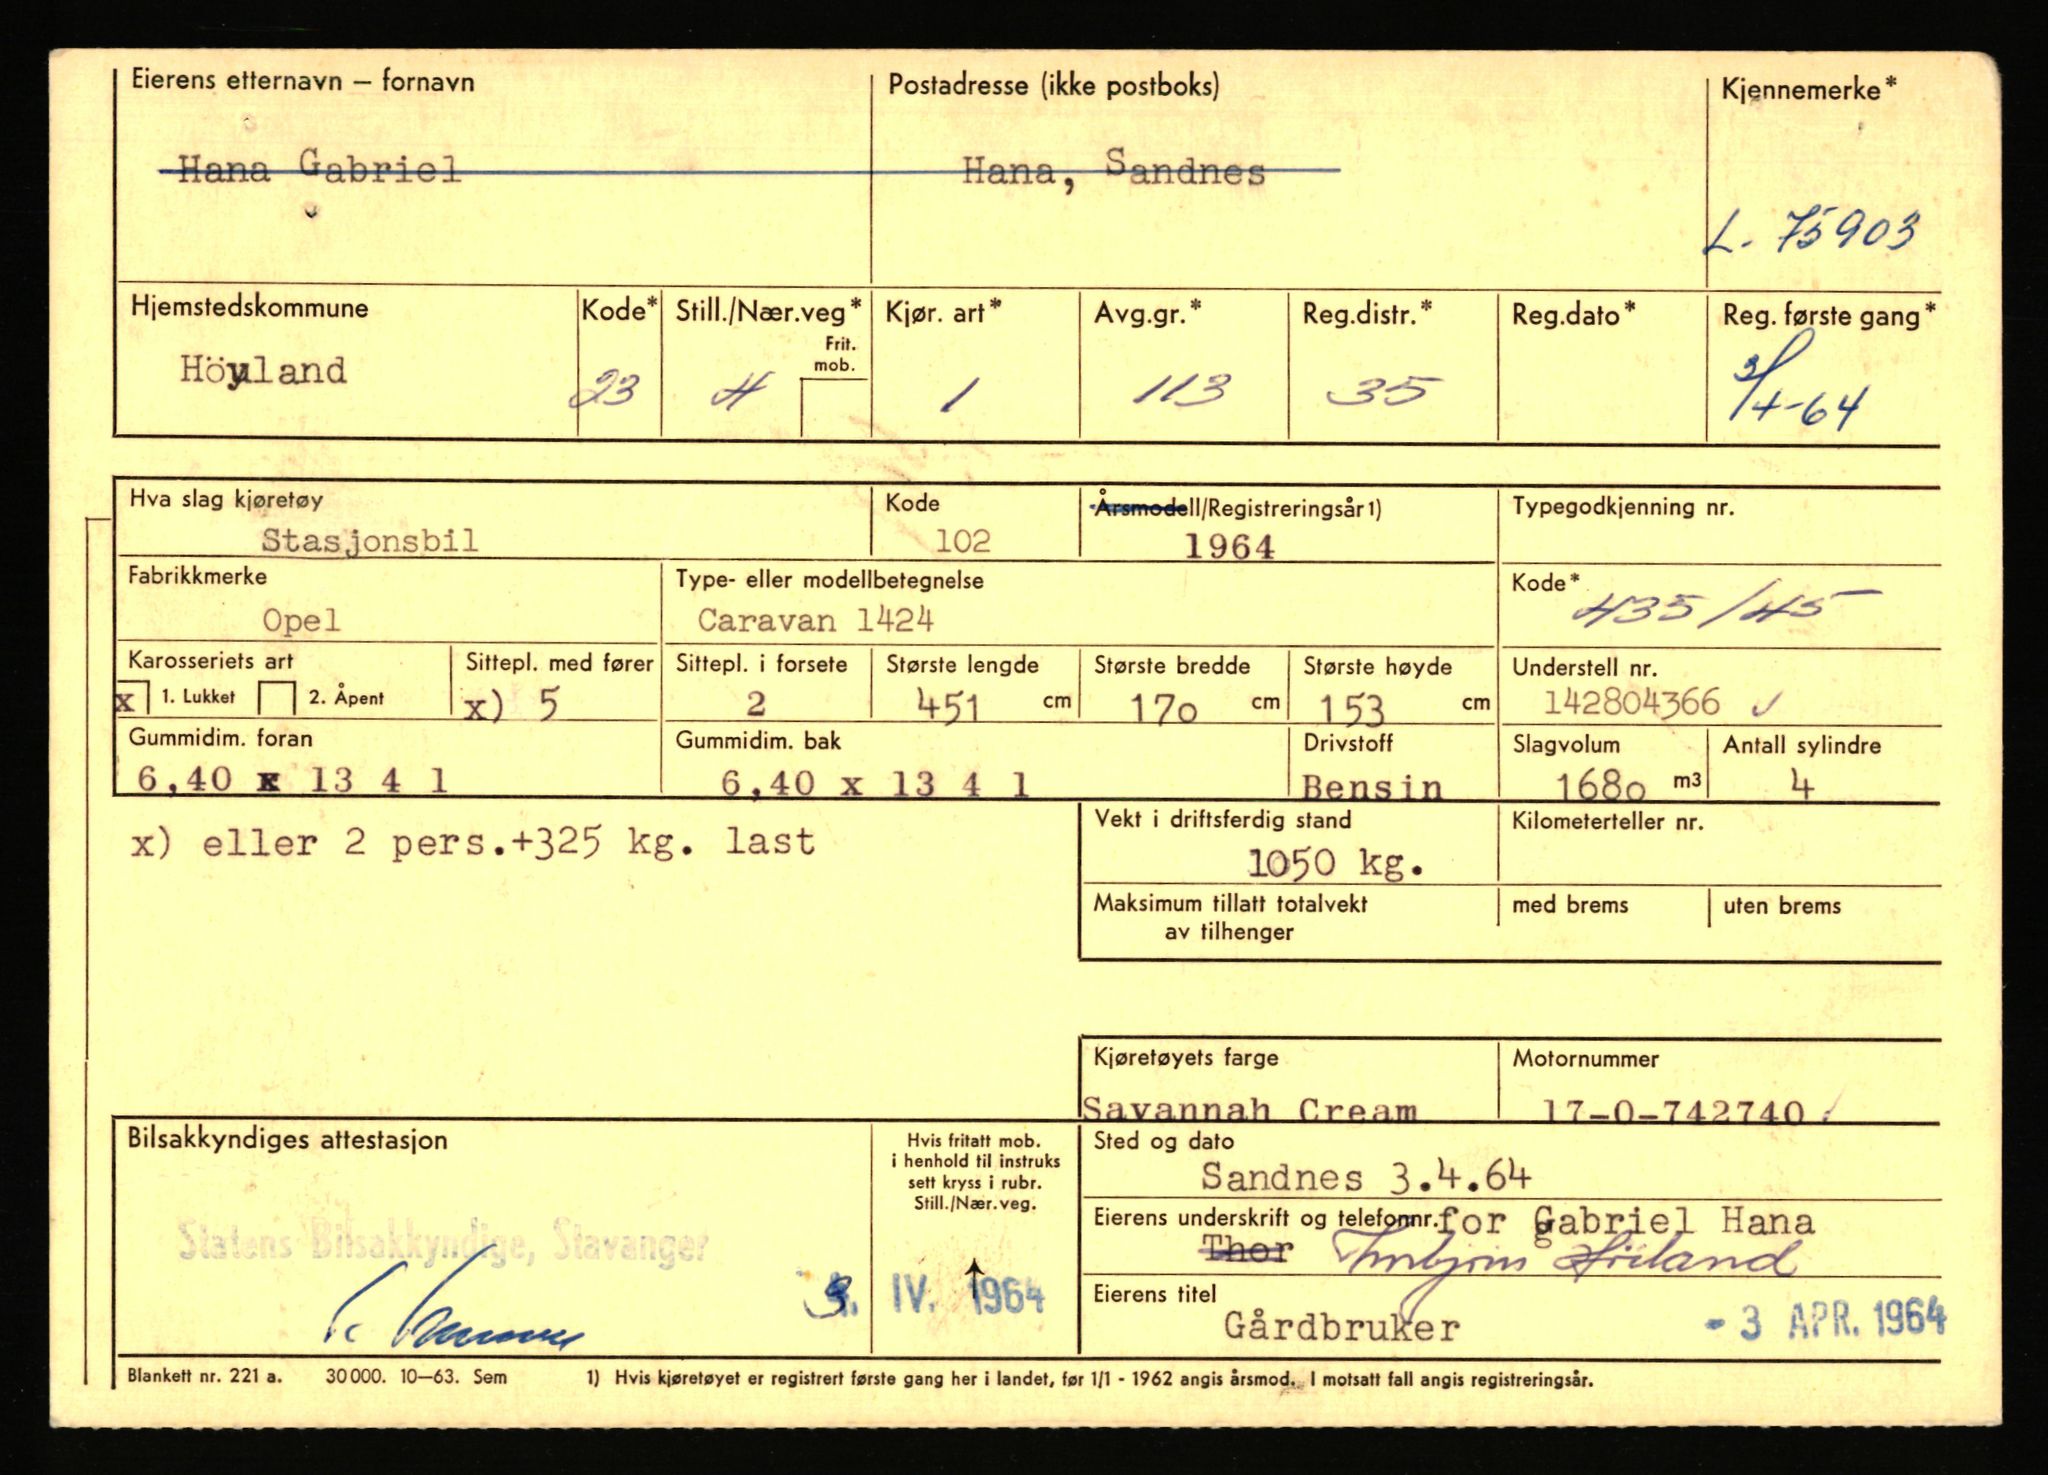 Eierens etternavn — fornavn Postadresse (ikke postboks) Kjennemerke*
Hana Gabriel Hana, Sandnes
L. 75903
Hjemstedskommune Kode* Still./Nær.veg* Kjør. art* Avg.gr.* Reg.distr.* Reg.dato* Reg. første gang*
Frit. mob.
Höyland 23 H 1 113 35 3/4-64
Hva slag kjøretøy Kode Årsmodell/Registreringsår1) Typegodkjenning nr.
Stasjonsbil 102 1964
Fabrikkmerke Type- eller modellbetegnelse Kode*
Opel Caravan 1424 435/45
Karosseriets art Sittepl. med fører Sittepl. i forsete Største lengde Største bredde Største høyde Understell nr.
x 1. Lukket 2. Åpent x) 5 2 451 cm 170 cm 153 cm 142804366
Gummidim. foran Gummidim. bak Drivstoff Slagvolum Antall sylindre
6,40 x 13 4 1 6,40 x 13 4 1 Bensin 1680 m3 4
x) eller 2 pers.+325 kg. last
Vekt i driftsferdig stand Kilometerteller nr.
1050 kg.
Maksimum tillatt totalvekt av tilhenger med brems uten brems
Kjøretøyets farge Motornummer
Savannah Cream 17-0-742740
Bilsakkyndiges attestasjon
Hvis fritatt mob.
i henhold til instruks
sett kryss i rubr.
Still./Nær.veg.
Statens Bilsakkyndige, Stavanger
3. IV. 1964
Sted og dato
Sandnes 3.4.64
Eierens underskrift og telefonnr. for Gabriel Hana
Thor Torbjørn Höiland
Eierens titel
Gårdbruker - 3 APR. 1964
Blankett nr. 221 a. 30000. 10—63. Sem 1) Hvis kjøretøyet er registrert første gang her i landet, før 1/1 - 1962 angis årsmod. I motsatt fall angis registreringsår.